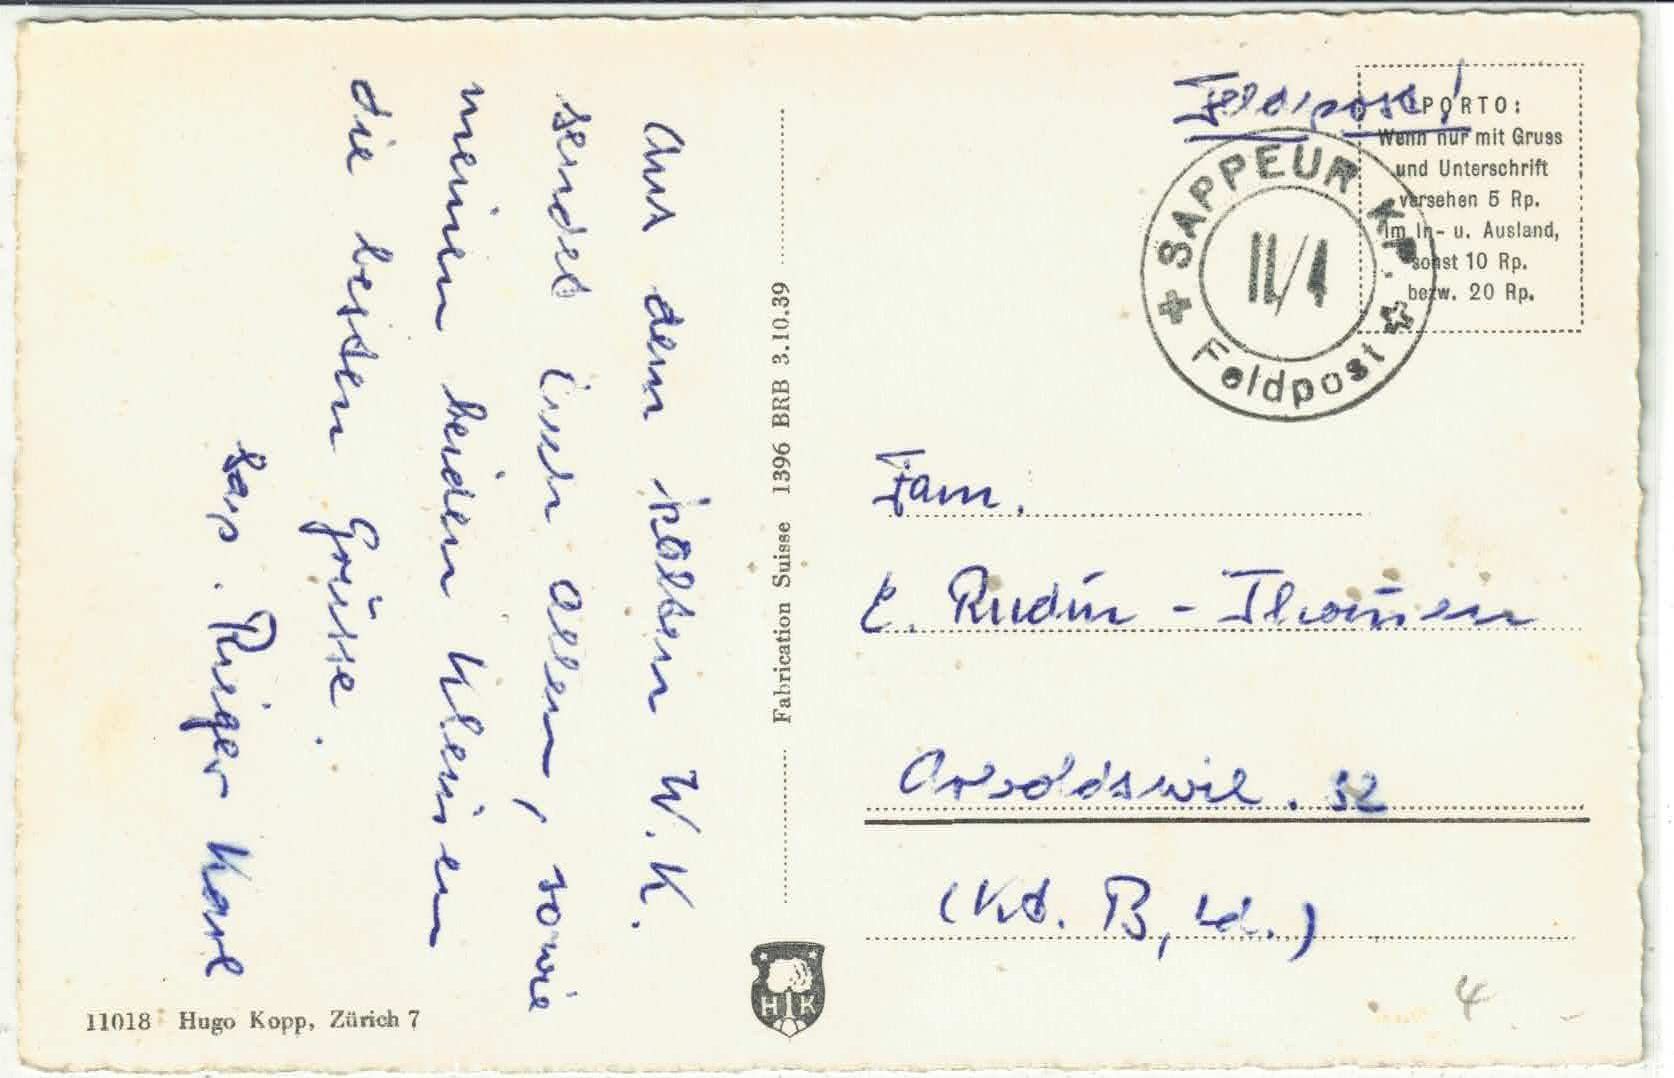 Aus dem kalten W.K.
sendet Euch allen, sowie
meinen beiden Kleinen
die besten Grüsse.
Sap. Rieger Karl
11018 Hugo Kopp, Zürich 7
Fabrication Suisse 1396 BRB 3.10.39
HK
Feldpost!
PORTO:
Wenn nur mit Gruss
und Unterschrift
versehen 5 Rp.
im In- u. Ausland,
sonst 10 Rp.
bezw. 20 Rp.
SAPPEUR KP.
II/4
Feldpost
Fam.
E. Rudin - Thommen
Arboldswil. 52
(Kt. B, Ld.)
4